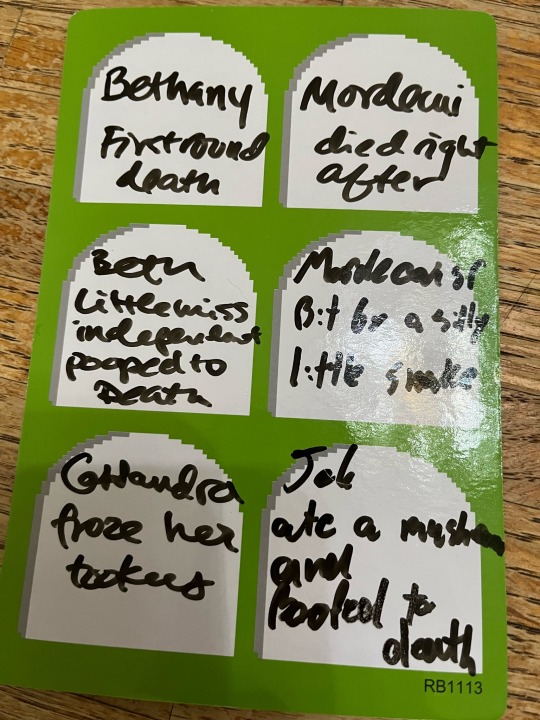 Bethany
First round
death
Mordecai
died right
after
Beth
Little miss
independent
pooped to
Death
Mordecai sr
Bit by a silly
little snake
Cassandra
froze her
tookus
Job
ate a mushroom
and
Pooped to
death
RB1113